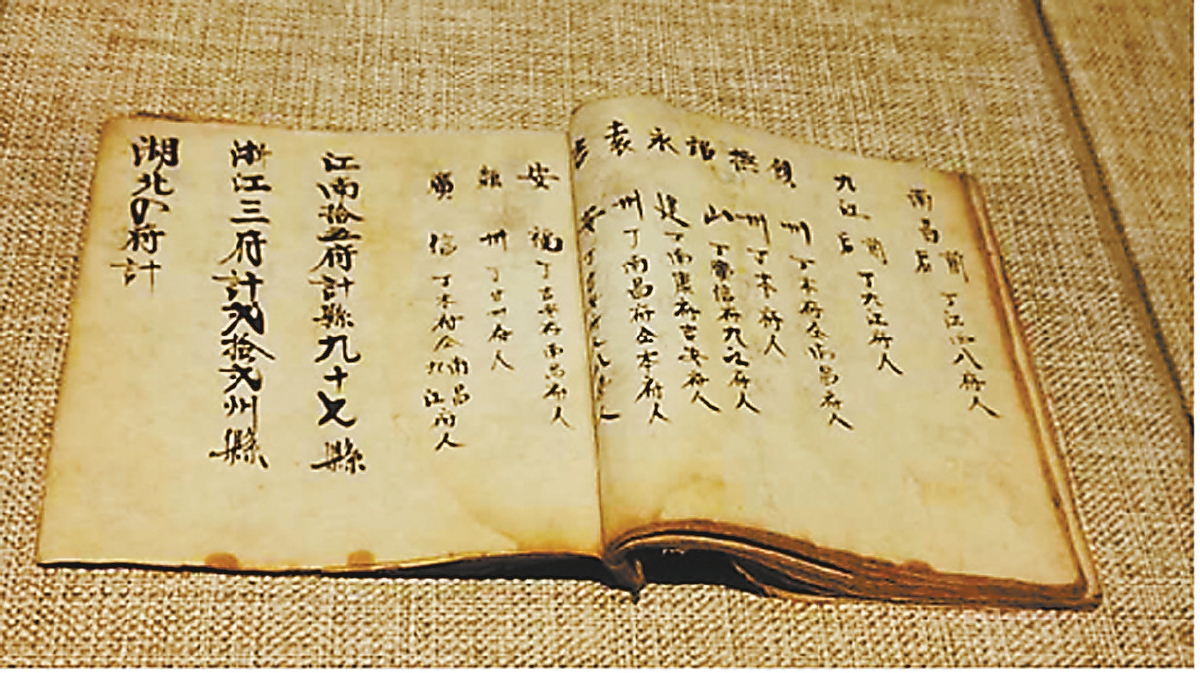 南昌 前 丁江西八府人
九江 前 丁九江府人
饒州 丁本府仝南昌府人
撫州 丁本府人
鉛山 丁廣信府九江府人
永建 丁南康府吉安府人
袁州 丁南昌府仝本府人
吉安
安福 丁吉安府南昌府人
贛州 丁吉州府人
廣信 丁本府仝南昌九江府人
江南拾五府計縣九十七縣
浙江三府計弍拾弍州縣
湖北の府計